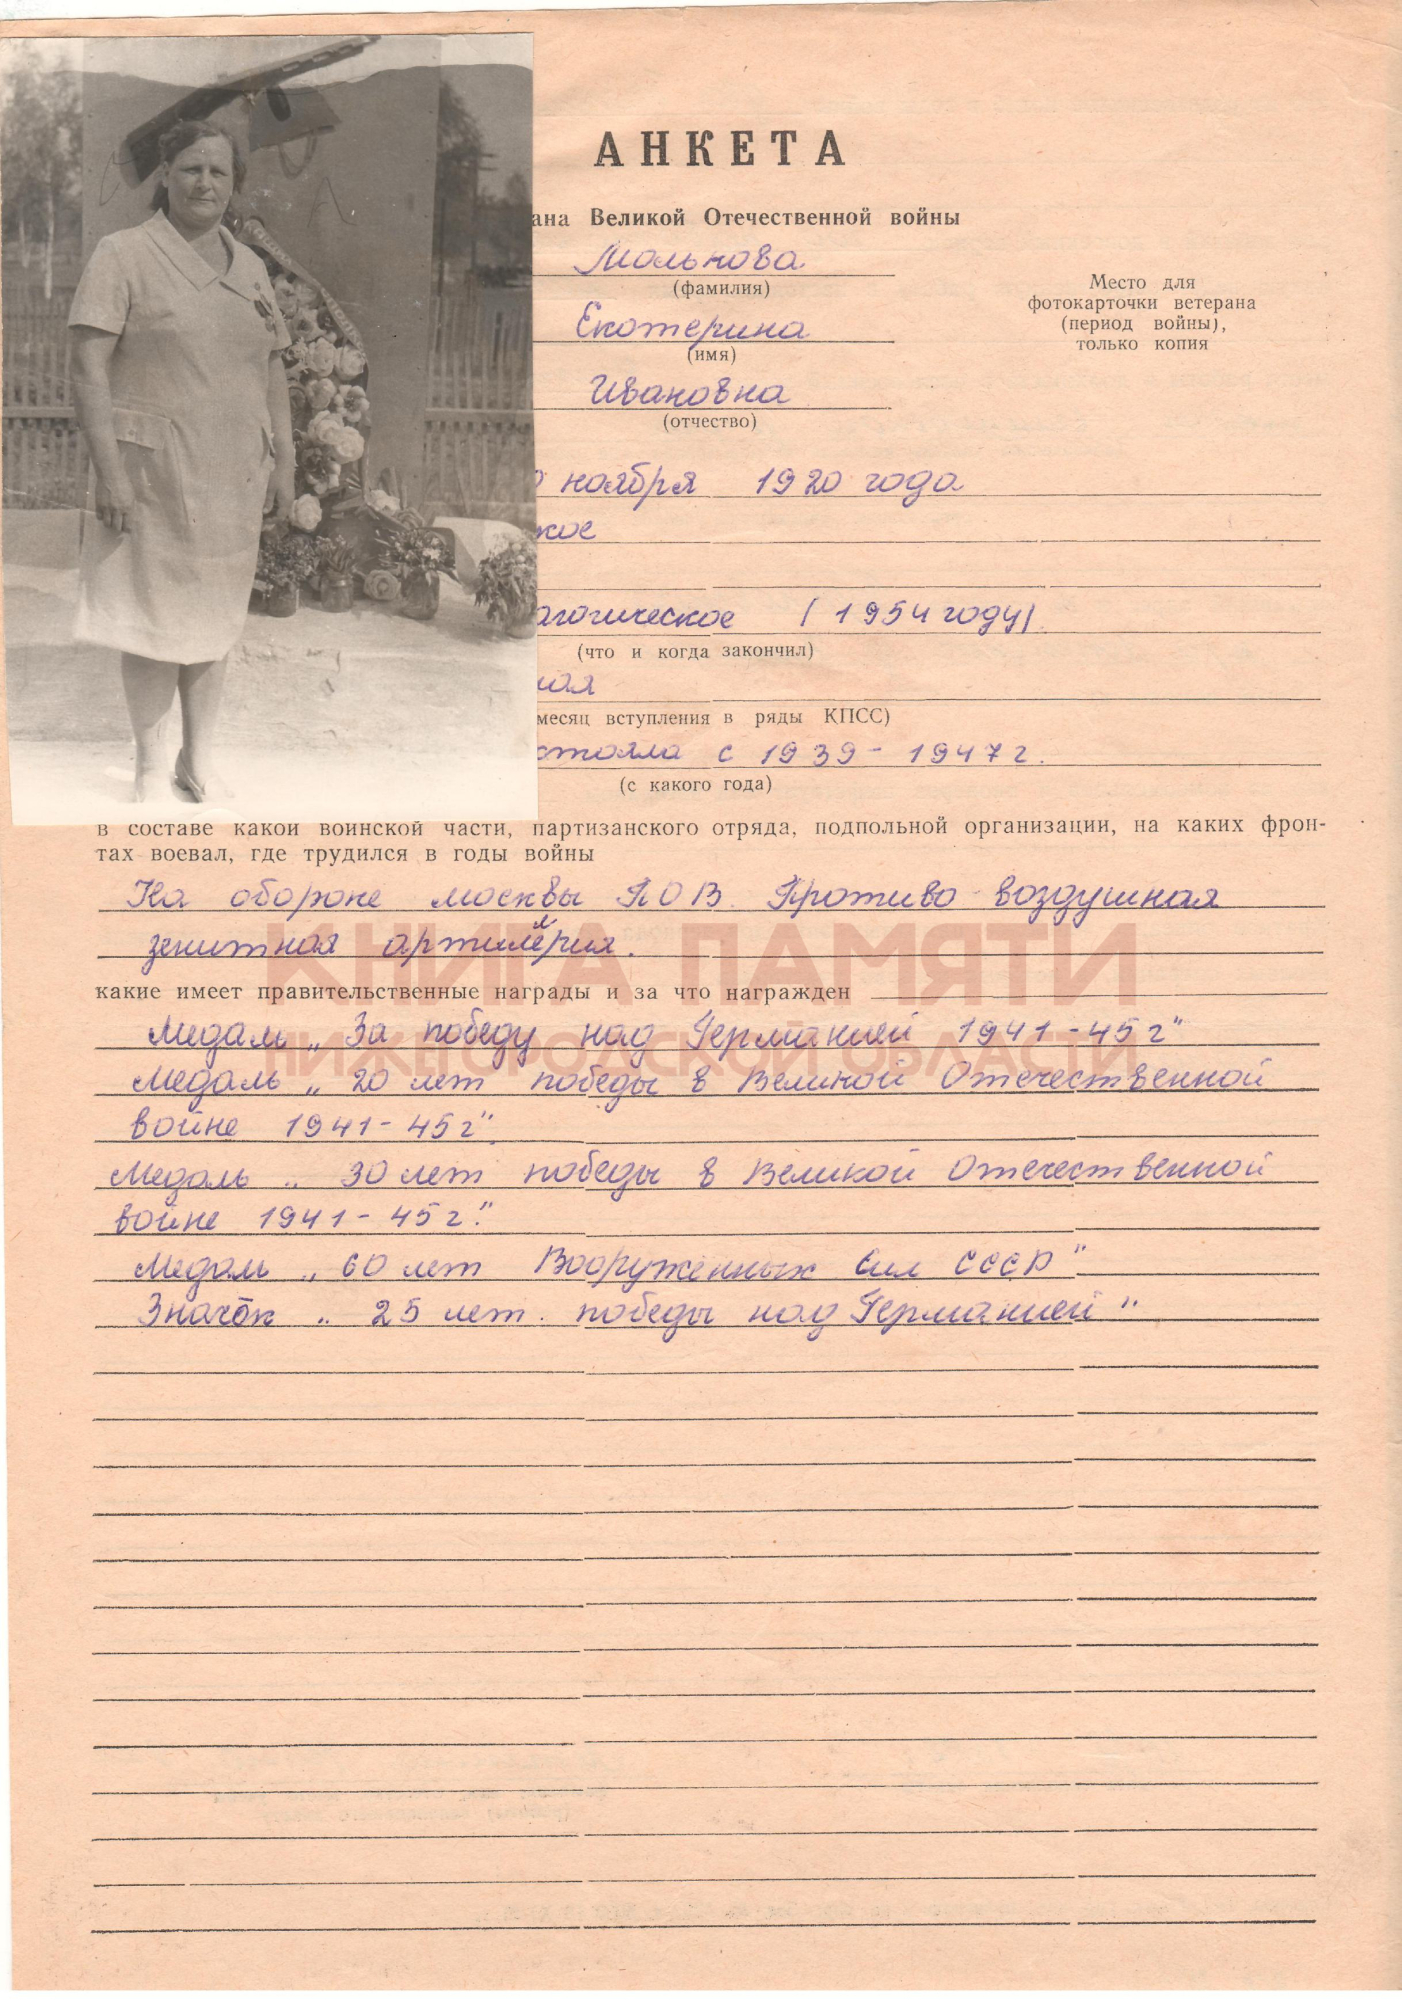 АНКЕТА
ана Великой Отечественной войны
Молькова
(фамилия)
Екатерина
(имя)
Ивановна
(отчество)
Место для
фотокарточки ветерана
(период войны),
только копия
ноября 1920 года
кое
агогическое (1954 году)
ная
месяц вступления в ряды КПСС)
стояла с 1939 - 1947 г.
(с какого года)
в составе какой воинской части, партизанского отряда, подпольной организации, на каких фрон-
тах воевал, где трудился в годы войны
На обороне москвы П О В. Противо-воздушная
зенитная артилерия.
КНИГА ПАМЯТИ
какие имеет правительственные награды и за что награжден
Медаль „За победу над Германией 1941-45 г"
НИЖЕГОРОДСКОЙ ОБЛАСТИ
Медаль „20 лет победы в Великой Отечественной
войне 1941-45 г".
Медаль „30 лет победы в Великой Отечественной
войне 1941-45 г."
Медаль „60 лет Вооруженных Сил СССР"
Значок „25 лет. победы над Германией"